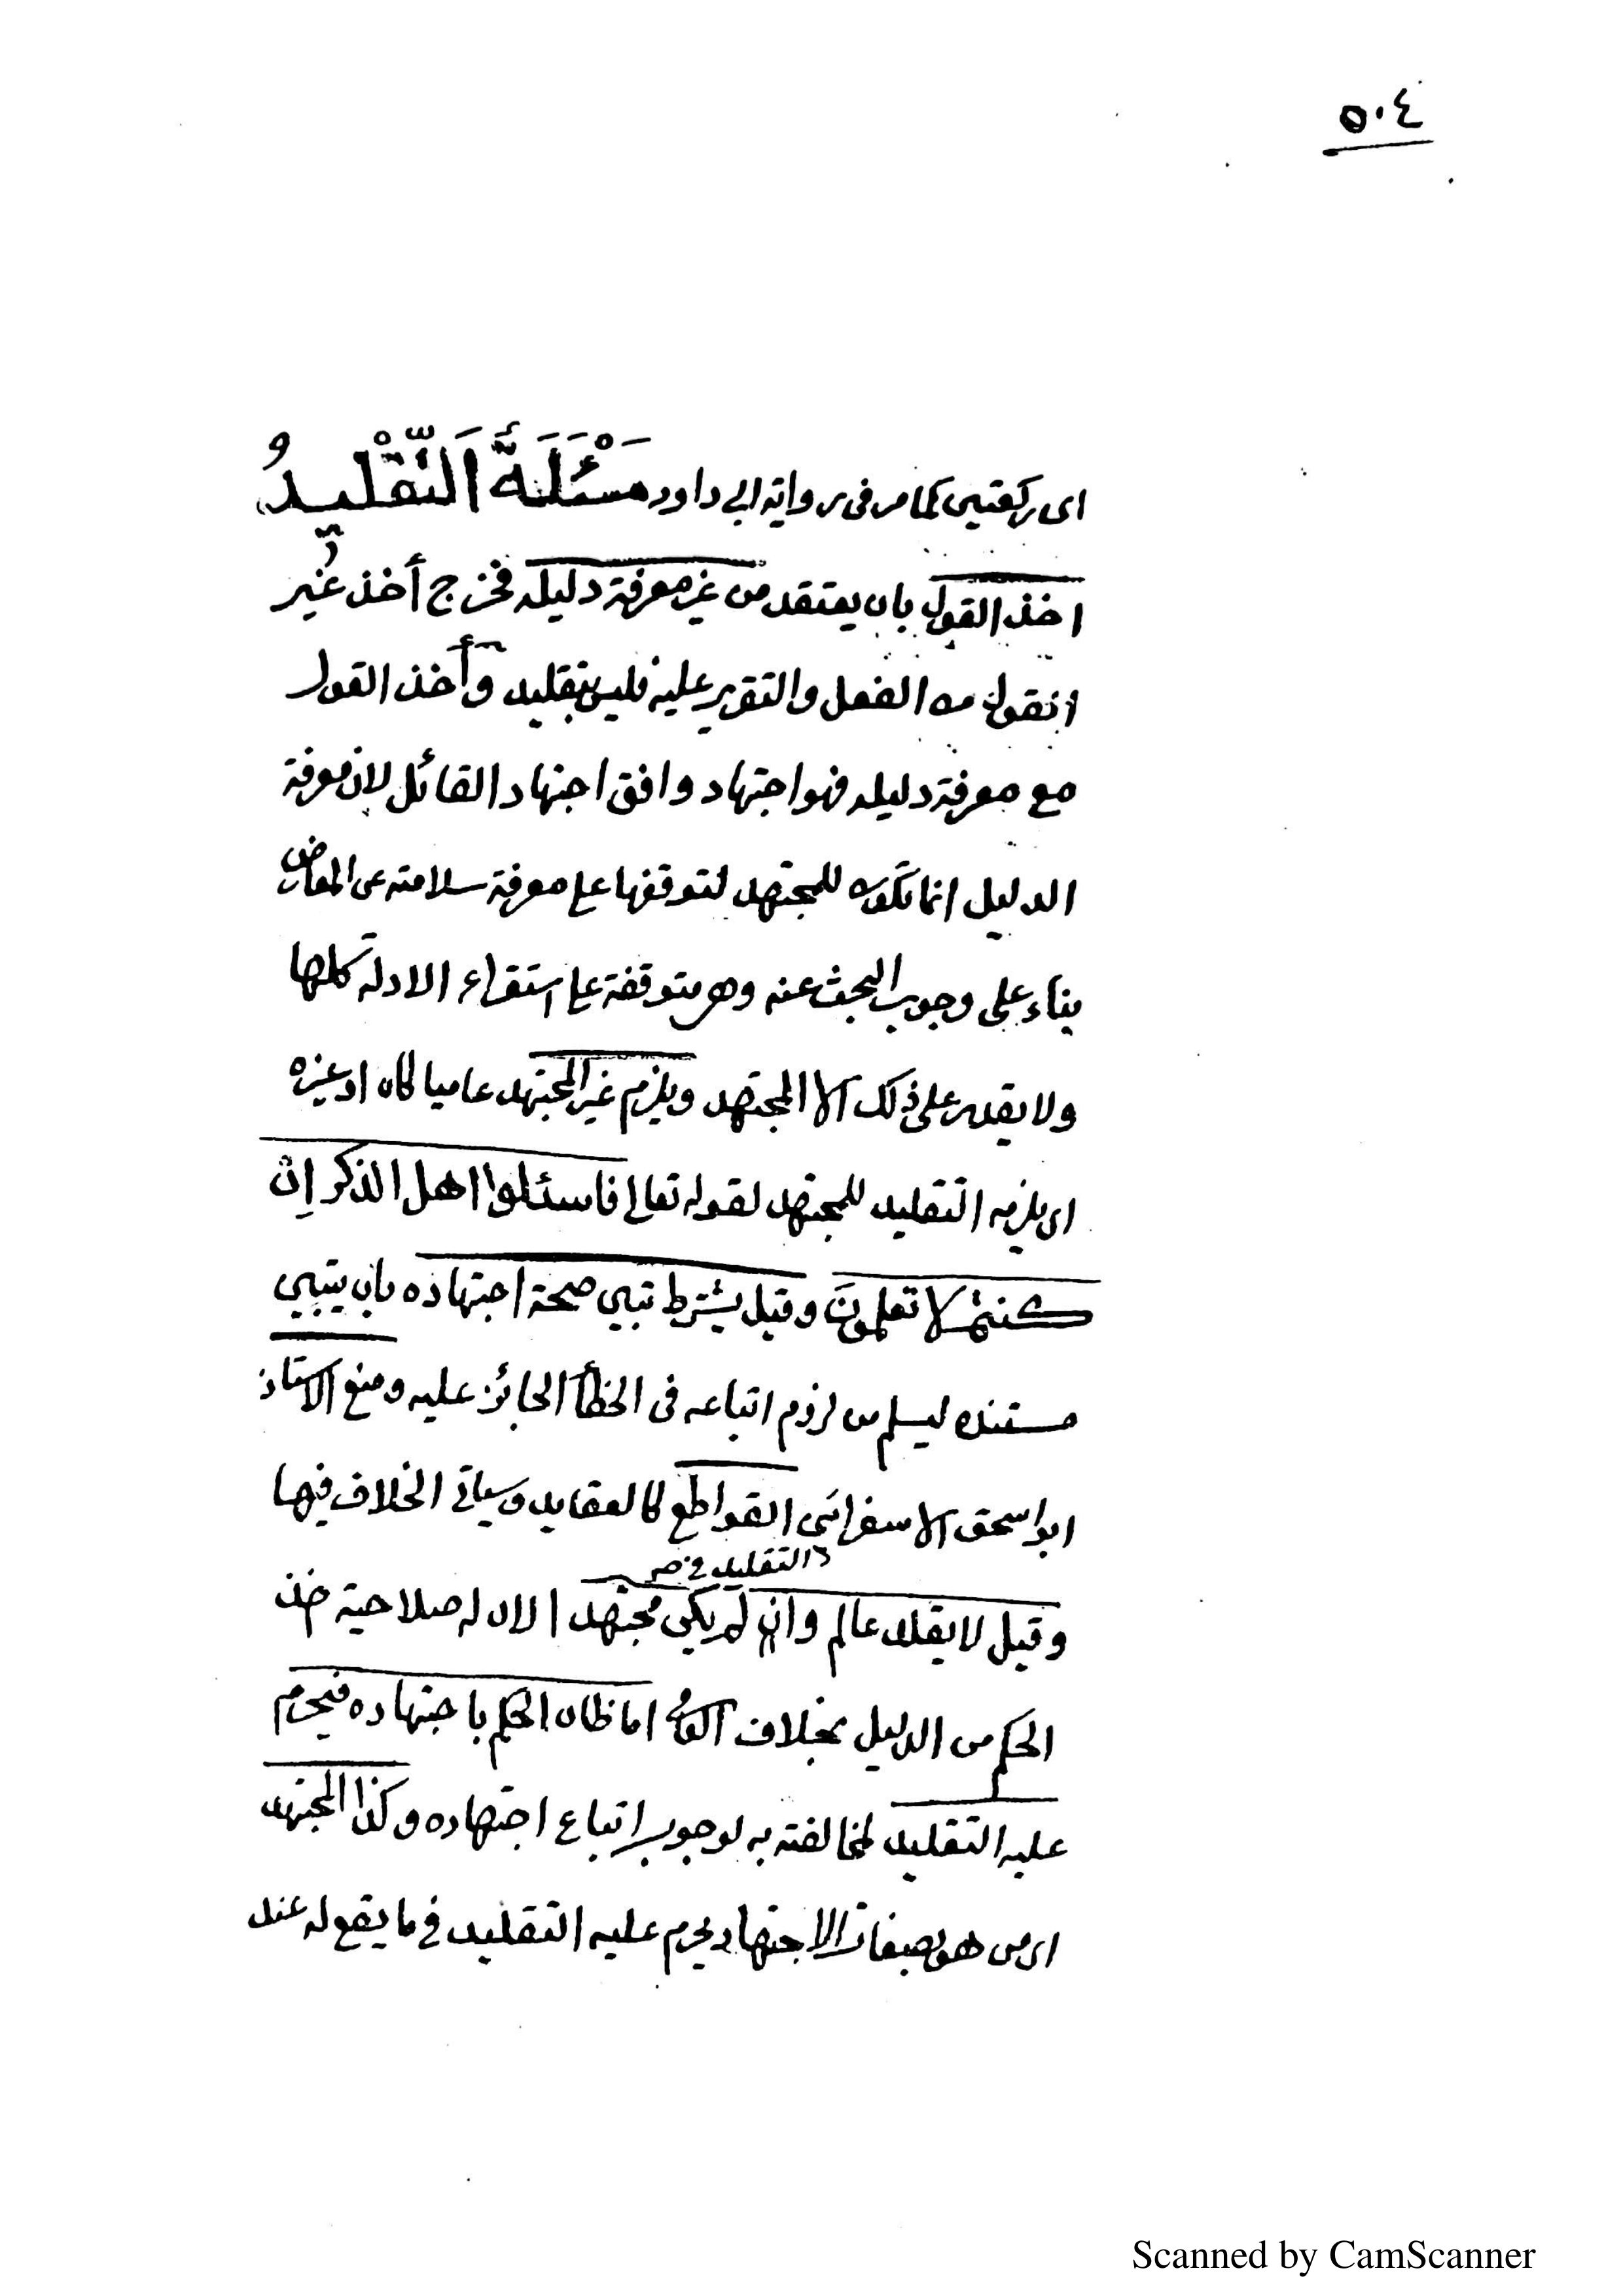 ٥٠٤
اى ركعتين كما مر فى رواية ابى داود مَسْئَلَةٌ اَلتَّقْلِيدُ
اخذ القول بان يعتقد من غير معرفة دليله فخرج أخذ غير
القول من الفعل والتقرير عليه فليس بتقليد وأخذ القول
مع معرفة دليله فهو اجتهاد وافق اجتهاد القائل لان معرفة
الدليل انما تكون للمجتهد لتوقفها على معرفة سلامته عن المعارض
بناء على وجوب البحث عنه وهى متوقفة على استقراء الادلة كلها
ولا يقدر على ذلك الا المجتهد ويلزم غير المجتهد عاميا كان او غيره
اى يلزمه التقليد للمجتهد لقوله تعالى فاسئلوا اهل الذكر إن
كنتم لا تعلمون وقيل يشترط تبين صحة اجتهاده بان يتبين
مستنده ليسلم من لزوم اتباعه فى الخطأ الجائز عليه ومنع الاستاذ
ابو اسحق الاسفرائنى القواطع كالعقايد وسياتى الخلاف فيها
التقليد فى صح
وقيل لا يقلد عالم وان لم يكن مجتهدا لان له صلاحية اخذ
الحكم من الدليل بخلاف العامى اما ظان الحكم باجتهاده فيحرم
عليه التقليد لمخالفته به لوجوب اتباع اجتهاده وكذا المجتهد
اى من هو بصفات الاجتهاد يحرم عليه التقليد فى ما يقع له عند
Scanned by CamScanner